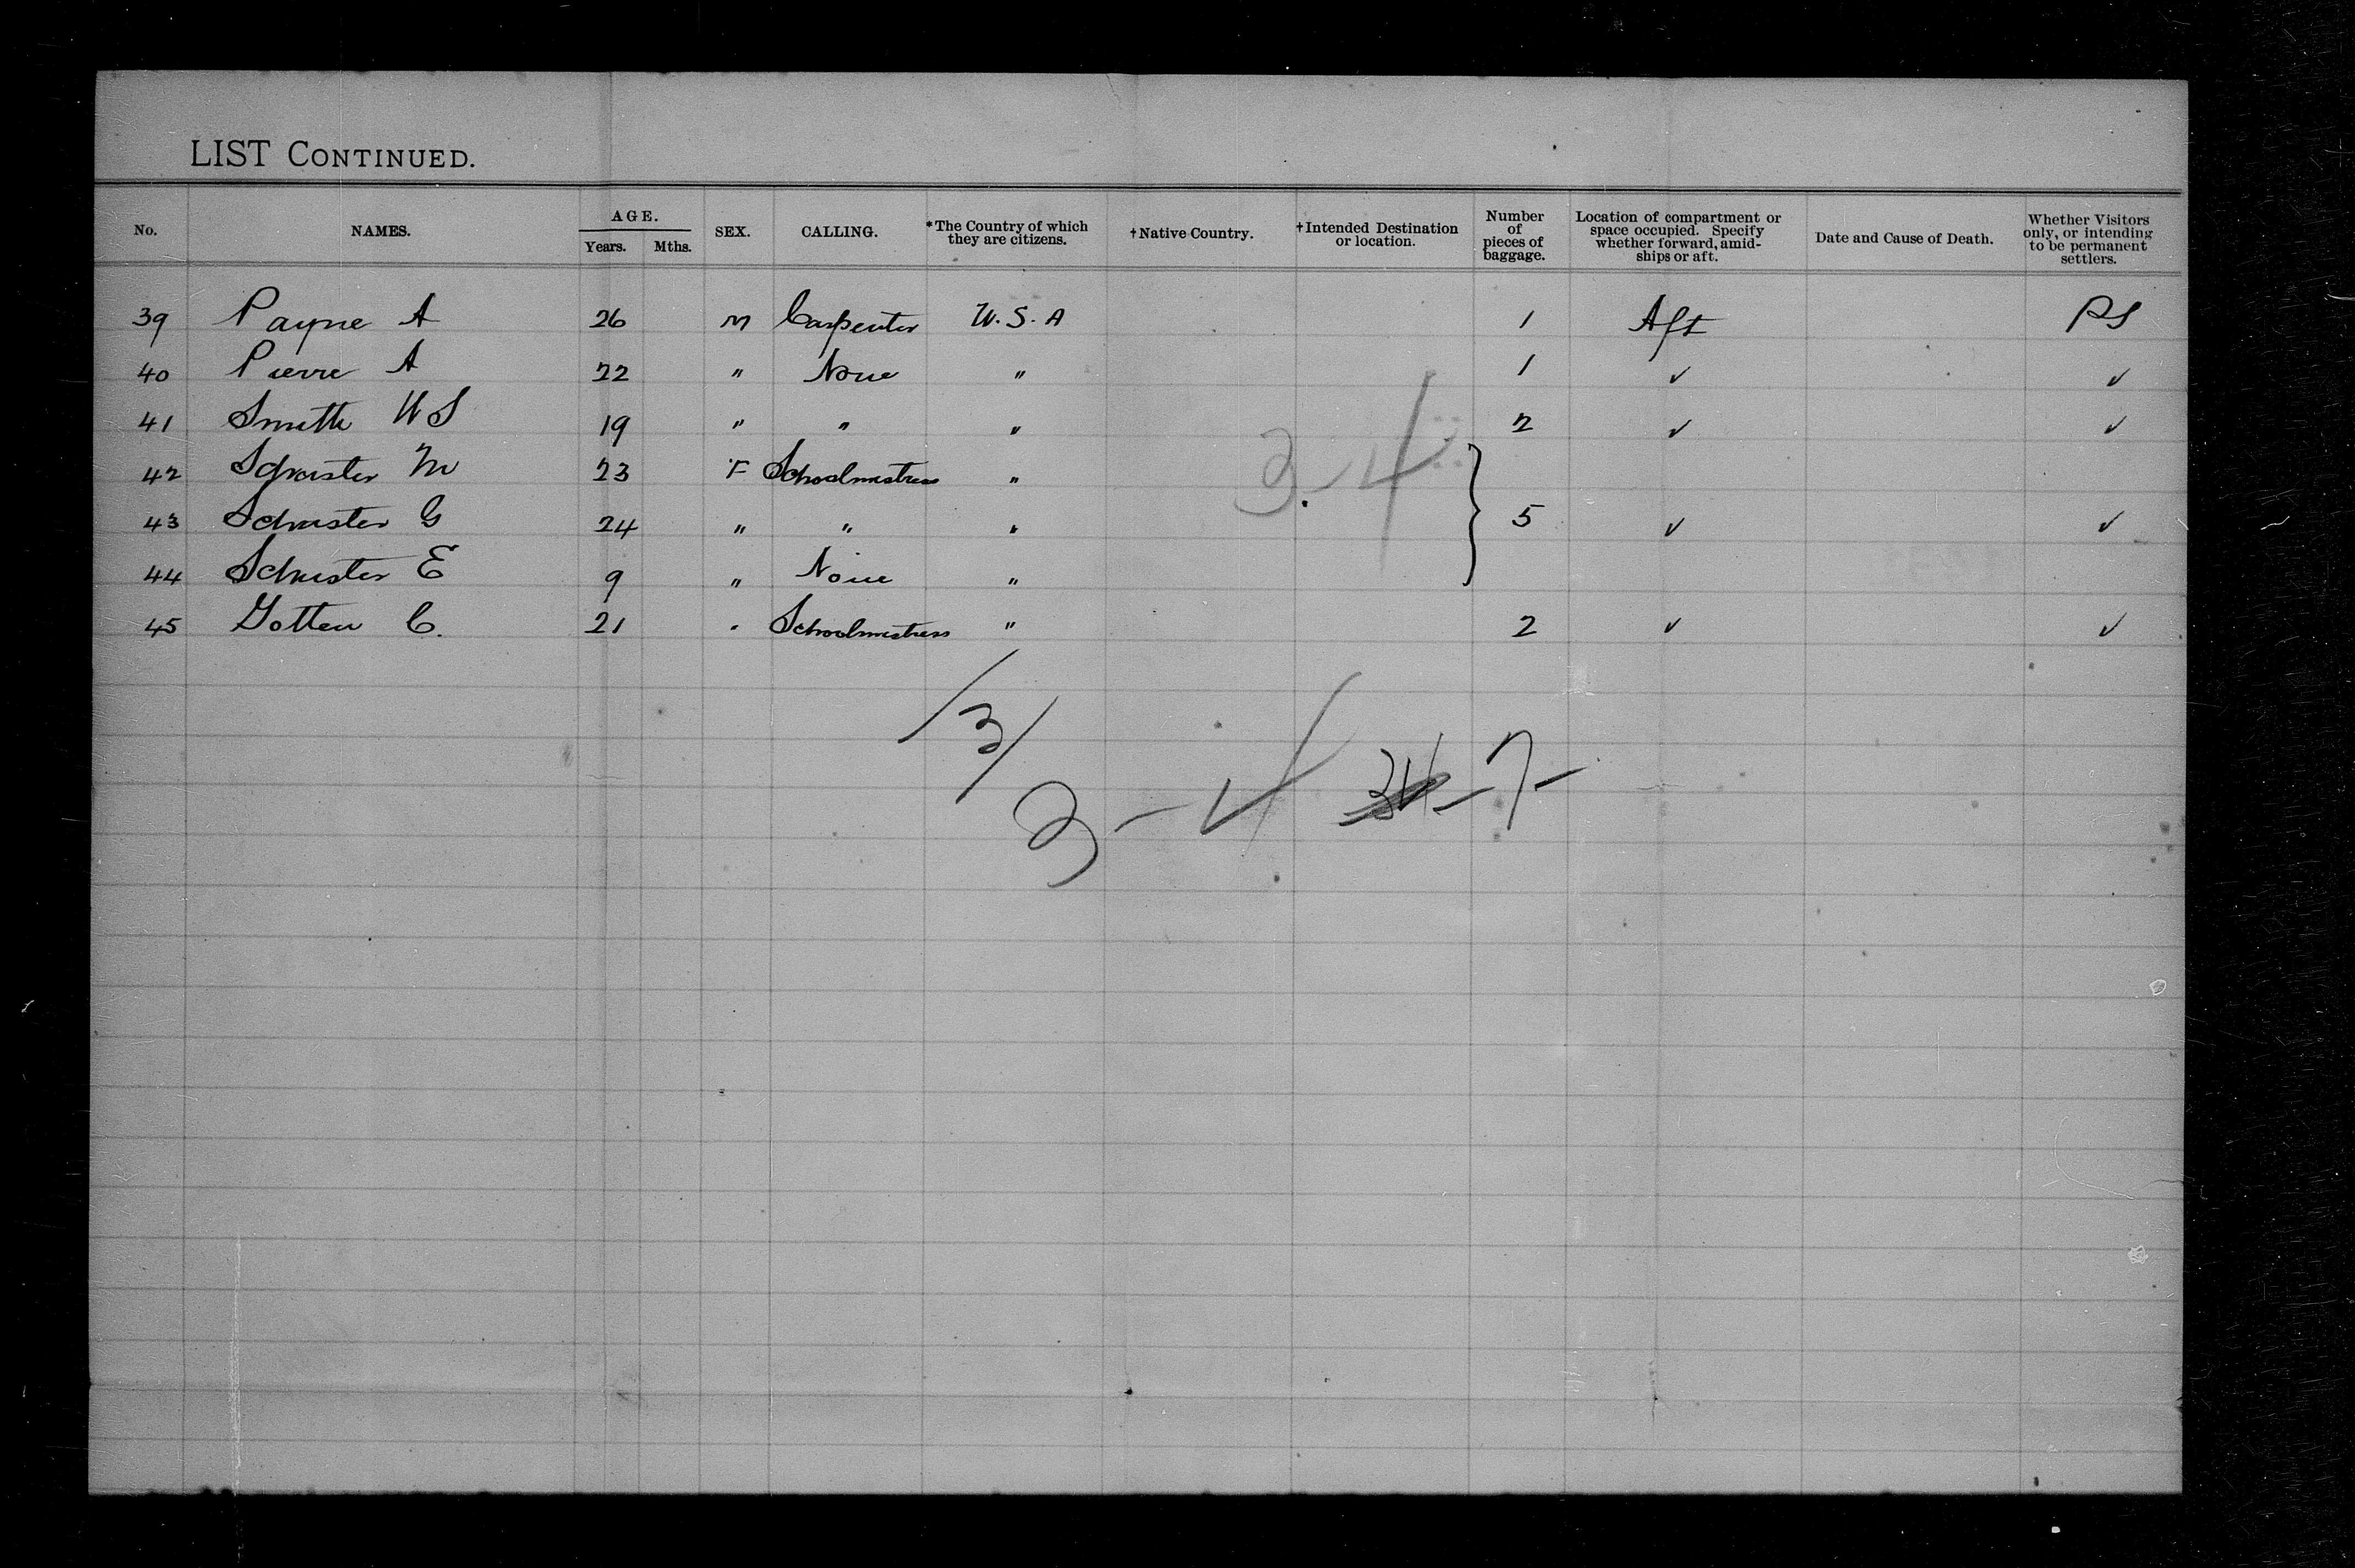 LIST CONTINUED.
No. NAMES. AGE. Years. Mths. SEX. CALLING. *The Country of which they are citizens. †Native Country. †Intended Destination or location. Number of pieces of baggage. Location of compartment or space occupied. Specify whether forward, amid-ships or aft. Date and Cause of Death. Whether Visitors only, or intending to be permanent settlers.
39 Payne A 26 M Carpenter U.S.A 1 Aft PS
40 Pierre A 22 " None " 1 ✓ ✓
41 Smith W S 19 " " " 2 ✓ ✓
42 Schuster M 23 F Schoolmistress "
43 Schuster G 24 " " " 5 ✓ ✓
44 Schuster E 9 " None "
45 C. 21 " Schoolmistress " 2 ✓ ✓
3-4
/3/
3-4 -7-